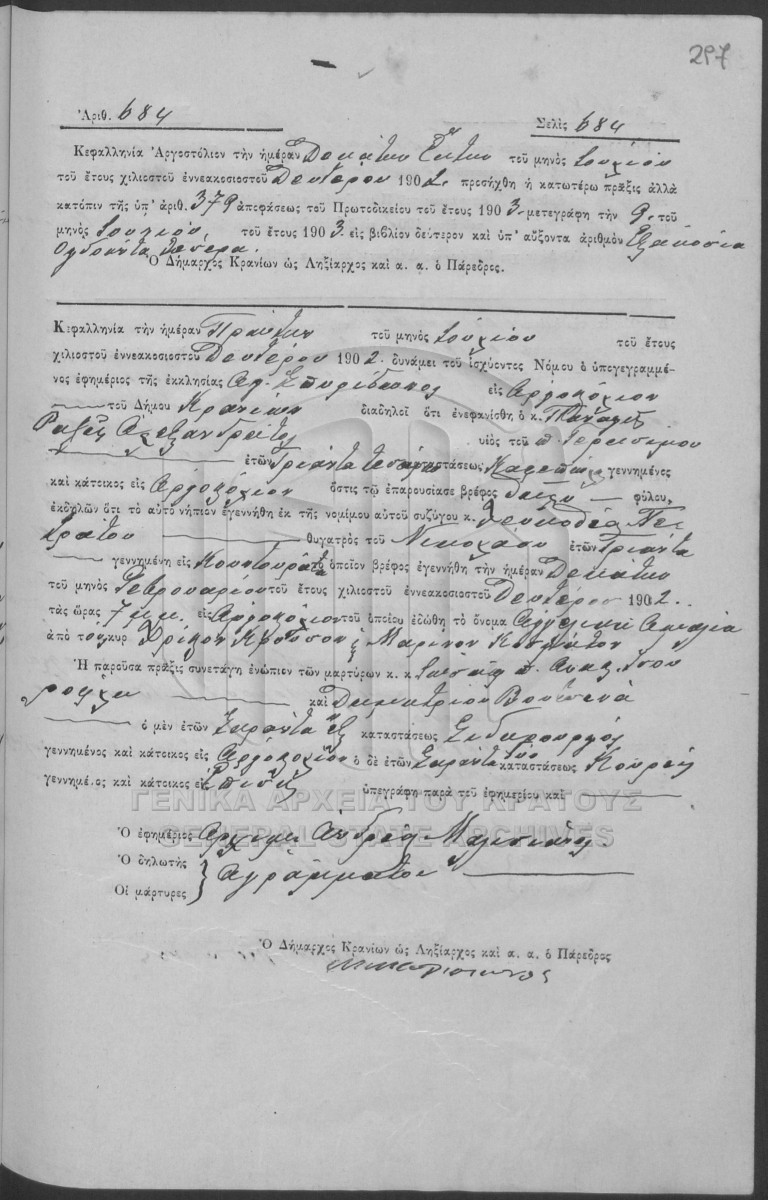 297
Ἀριθ. 684 Σελὶς 684
Κεφαλληνία Ἀργοστόλιον τὴν ἡμέραν Δεκάτην Ἕκτην τοῦ μηνὸς Ἰουλίου
τοῦ ἔτους χιλιοστοῦ ἐννεακοσιοστοῦ Δευτέρου 1902 προσήχθη ἡ κατωτέρω πρᾶξις ἀλλὰ
κατόπιν τῆς ὑπ' ἀριθ. 379 ἀποφάσεως τοῦ Πρωτοδικείου τοῦ ἔτους 1903 μετεγράφη τὴν 9 τοῦ
μηνὸς Ἰουλίου, τοῦ ἔτους 1903 εἰς βιβλίον δεύτερον καὶ ὑπ' αὔξοντα ἀριθμὸν Ἑξακόσια
Ογδοῆντα τέσσερα.
Ὁ Δήμαρχος Κρανίων ὡς Ληξίαρχος καὶ α. α. ὁ Πάρεδρος.
Κεφαλληνία τὴν ἡμέραν Πρώτην τοῦ μηνὸς Ἰουλίου τοῦ ἔτους
χιλιοστοῦ ἐννεακοσιοστοῦ Δευτέρου 1902 δυνάμει τοῦ ἰσχύοντος Νόμου ὁ ὑπογεγραμμέ-
νος ἐφημέριος τῆς ἐκκλησίας Αγ. Σπυρίδωνος εἰς Αργοστόλιον
τοῦ Δήμου Κρανίων διαδηλοῖ ὅτι ἐνεφανίσθη ὁ κ. Παναγῆς
Ραζῆς Αλεξανδράτος υἱὸς τοῦ π. Γερασίμου
ἐτῶν Τριάντα τεσσάρων καταστάσεως γεννημένος
καὶ κάτοικος εἰς Αργοστόλιον ὅστις τῷ ἐπαρουσίασε βρέφος θῆλυ φύλου,
ἐκδηλῶν ὅτι τὸ αὐτὸ νήπιον ἐγεννήθη ἐκ τῆς νομίμου αὐτοῦ συζύγου κ. Λευκοθέας Πε-
τράτου θυγατρὸς τοῦ Νικολάου ἐτῶν Τριάντα
γεννημένη εἰς Κουντουράτα τὸ ὁποῖον βρέφος ἐγεννήθη τὴν ἡμέραν Δεκάτην
τοῦ μηνὸς Φεβρουαρίου τοῦ ἔτους χιλιοστοῦ ἐννεακοσιοστοῦ Δευτέρου 1902
τὰς ὥρας 7 μ.μ. εἰς Αργοστόλιον τοῦ ὁποίου ἐδώθη τὸ ὄνομα Αγγελικὴ Αμαλία
ἀπὸ τους κυρ Μαρίνον
Ἡ παροῦσα πρᾶξις συνετάγη ἐνώπιον τῶν μαρτύρων κ. κ.
καὶ Δημητρίου
ὁ μὲν ἐτῶν Σαράντα ἓξ καταστάσεως Σιδηρουργὸς
γεννημένος καὶ κάτοικος εἰς Αργοστόλιον ὁ δὲ ἐτῶν Σαράντα δύο καταστάσεως Κουρεὺς
γεννημένος καὶ κάτοικος εἰς Ἐπίσης ὑπεγράφη παρὰ τοῦ ἐφημερίου καὶ
ΓΕΝΙΚΑ ΑΡΧΕΙΑ ΤΟΥ ΚΡΑΤΟΥΣ
GENERAL STATE ARCHIVES
Ὁ ἐφημέριος Ανδρέας
Ὁ δηλωτὴς
Οἱ μάρτυρες } Αγράμματοι
Ὁ Δήμαρχος Κρανίων ὡς Ληξίαρχος καὶ α. α. ὁ Πάρεδρος